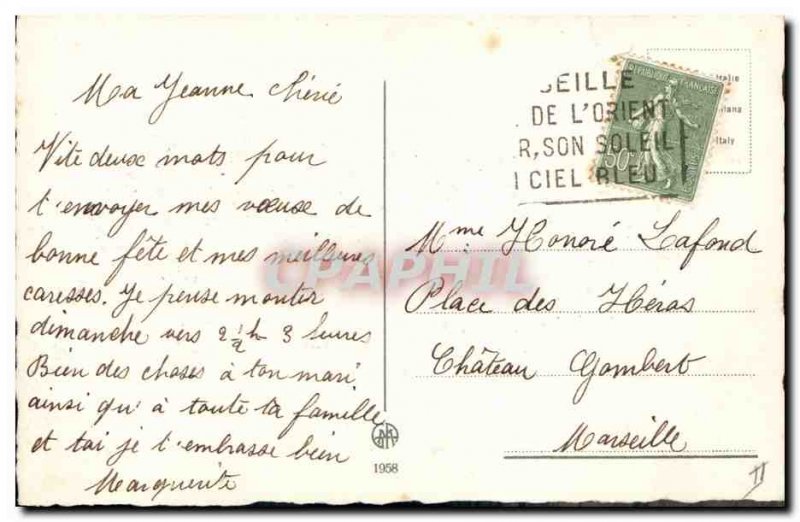 Ma Jeanne chérie
Vite deux mots pour
t'envoyer mes vœux de
bonne fête et mes meilleures
caresses. Je pense monter
dimanche vers 2 ½ h 3 heures
Bien des choses à ton mari
ainsi qu'à toute ta famille
et toi je t'embrasse bien
Marguerite
1958
SEILLE
DE L'ORIENT
R, SON SOLEIL
CIEL BLEU
REPUBLIQUE FRANÇAISE
50
Italie
Italy
Mme Honoré Lafond
Place des Héros
Château Gombert
Marseille
CPAPHIL